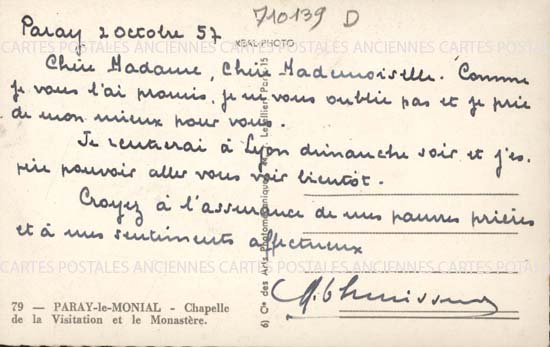 710139 D
Paray 2 octobre 57
REAL-PHOTO
CARTES POSTALES ANCIENNES CARTES POSTALES ANCIENNES CARTES POSTALES
Chère Madame, Chère Mademoiselle. Comme
je vous l'ai promis, je ne vous oublie pas et je prie
de mon mieux pour vous.
Je rentrerai à Lyon dimanche soir et j'es-
père pouvoir aller vous voir bientôt.
Croyez à l'assurance de mes pauvres prières
et à mes sentiments affectueux
CARTES POSTALES ANCIENNES CARTES POSTALES ANCIENNES CARTES POSTALES
79 — PARAY-le-MONIAL - Chapelle
de la Visitation et le Monastère.
6) Cie des Arts Photomécaniques Lecellier Paris 15